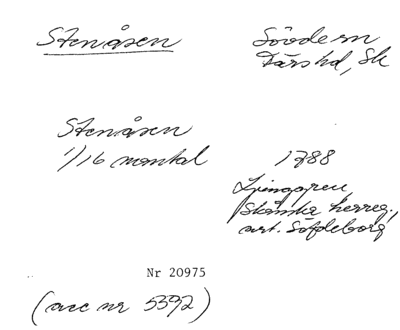 Stenåsen
Sövde sn
Färs hd, Sk
Stenåsen
1/16 mantal
1788
Ljunggren,
Skånska herreg.,
art. Söfdeborg
Nr 20975
(acc nr 5392)